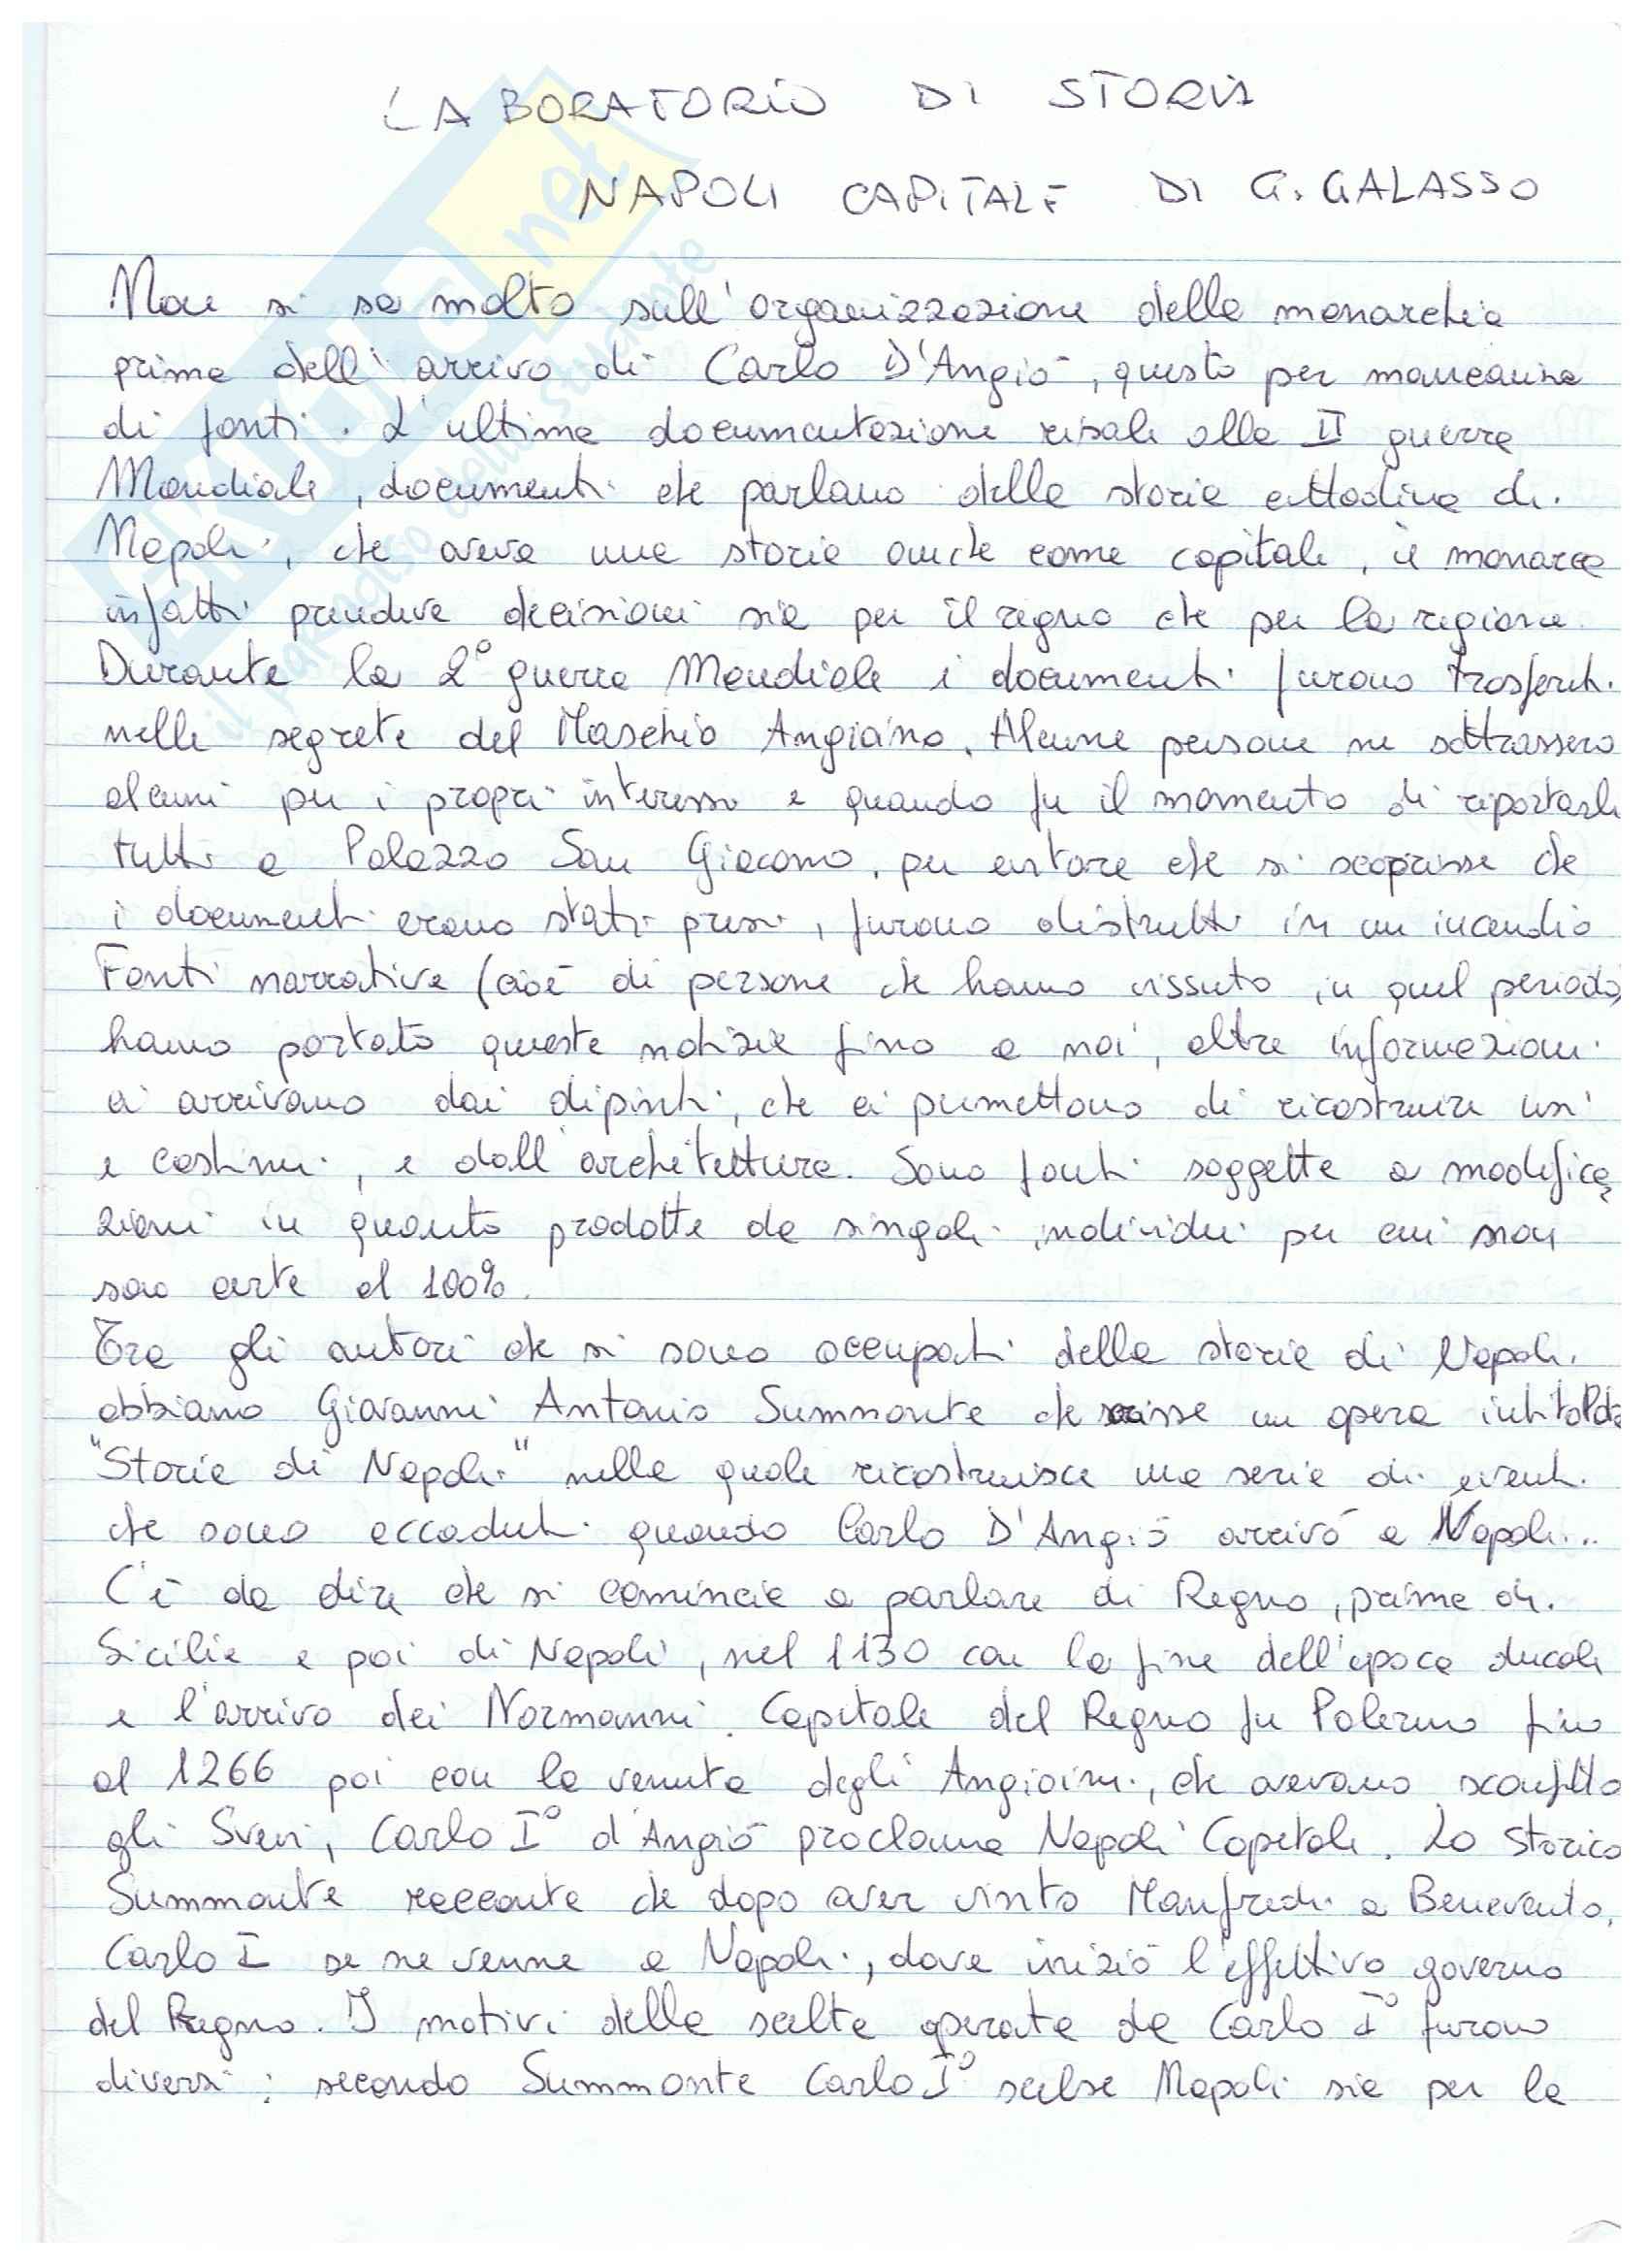 LABORATORIO DI STORIA
NAPOLI CAPITALE DI G. GALASSO
Non si sa molto sull'organizzazione della monarchia
prima dell'arrivo di Carlo D'Angiò, questo per mancanza
di fonti. L'ultima documentazione risale alla II guerra
Mondiale, documenti che parlano della storia cittadina di
Napoli, che aveva una storia anche come capitale, il monarca
infatti prendeva decisioni sia per il regno che per la regione.
Durante la 2° guerra Mondiale i documenti furono trasferiti
nelle segrete del Maschio Angioino. Alcune persone ne sottrassero
alcuni per i propri interessi e quando fu il momento di riportarli
tutti a Palazzo San Giacomo, per evitare che si scoprisse che
i documenti erano stati presi, furono distrutti in un incendio
Fonti narrative (cioè di persone che hanno vissuto in quel periodo)
hanno portato queste notizie fino a noi, altre informazioni
ci arrivano dai dipinti, che ci permettono di ricostruire usi
e costumi, e dall'architettura. Sono fonti soggette a modifica
zioni in quanto prodotte da singoli individui per cui non
sono certe al 100%.
Tra gli autori che si sono occupati della storia di Napoli
abbiamo Giovanni Antonio Summonte che scrisse un opera intitolata
"Storia di Napoli" nella quale ricostruisce una serie di eventi
che sono accaduti quando Carlo D'Angiò arrivò a Napoli...
C'è da dire che si comincia a parlare di Regno, prima di
Sicilia e poi di Napoli, nel 1130 con la fine dell'epoca ducale
e l'arrivo dei Normanni. Capitale del Regno fu Palermo fino
al 1266 poi con la venuta degli Angioini, che avevano sconfitto
gli Svevi, Carlo I° d'Angiò proclama Napoli Capitale. Lo storico
Summonte racconta che dopo aver vinto Manfredi a Benevento,
Carlo I se ne venne a Napoli, dove iniziò l'effettivo governo
del Regno. I motivi della scelta operata da Carlo I° furono
diversi: secondo Summonte Carlo I° scelse Napoli sia per la
SKUOLA.net
il paradiso dello studente